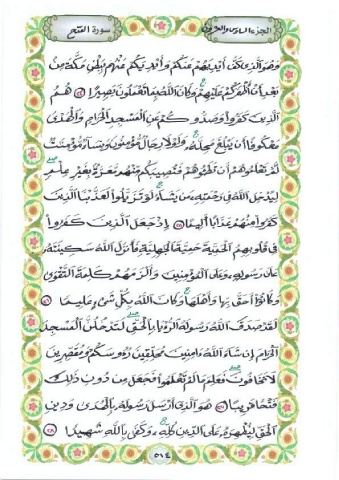 سورة الفتح
الجزء السادس والعشرون
وهو الذي كف أيديهم عنكم وأيديكم عنهم ببطن مكة من
بعد أن أظفركم عليهم وكان الله بما تعملون بصيرا ٢٤ هم
الذين كفروا وصدوكم عن المسجد الحرام والهدى
معكوفا أن يبلغ محله ولولا رجال مؤمنون ونساء مؤمنات
لم تعلموهم أن تطئوهم فتصيبكم منهم معرة بغير علم
ليدخل الله في رحمته من يشاء لو تزيلوا لعذبنا الذين
كفروا منهم عذابا أليما ٢٥ إذ جعل الذين كفروا
في قلوبهم الحمية حمية الجهلية فأنزل الله سكينته
على رسوله وعلى المؤمنين وألزمهم كلمة التقوى
وكانوا أحق بها وأهلها وكان الله بكل شيء عليما ٢٦
لقد صدق الله رسوله الرءيا بالحق لتدخلن المسجد
الحرام إن شاء الله ءامنين محلقين رءوسكم ومقصرين
لا تخافون فعلم ما لم تعلموا فجعل من دون ذلك
فتحا قريبا ٢٧ هو الذي أرسل رسوله بالهدى ودين
الحق ليظهره على الدين كله وكفى بالله شهيدا ٢٨
٥١٤